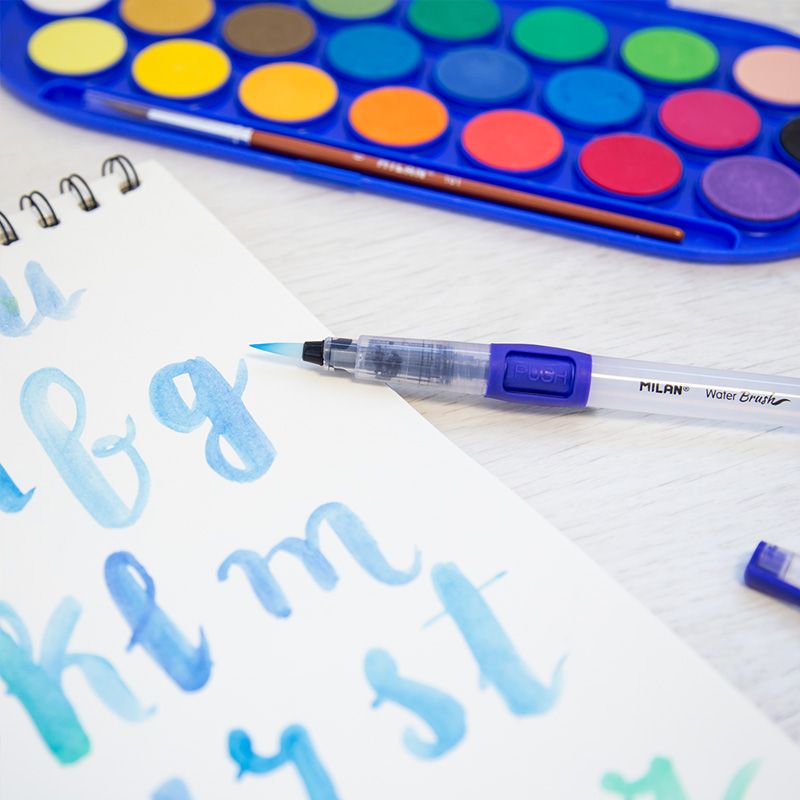 MILAN
u
PUSH
MILAN® Water Brush
b g
k l m
s t
r